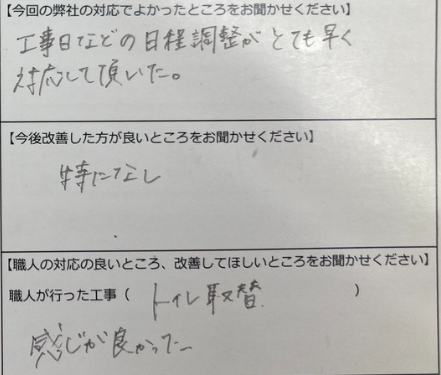 【今回の弊社の対応でよかったところをお聞かせください】
工事日などの日程調整がとても早く
対応して頂いた。
【今後改善した方が良いところをお聞かせください】
特になし
【職人の対応の良いところ、改善してほしいところをお聞かせください】
職人が行った工事（ トイレ取替 ）
感じが良かった